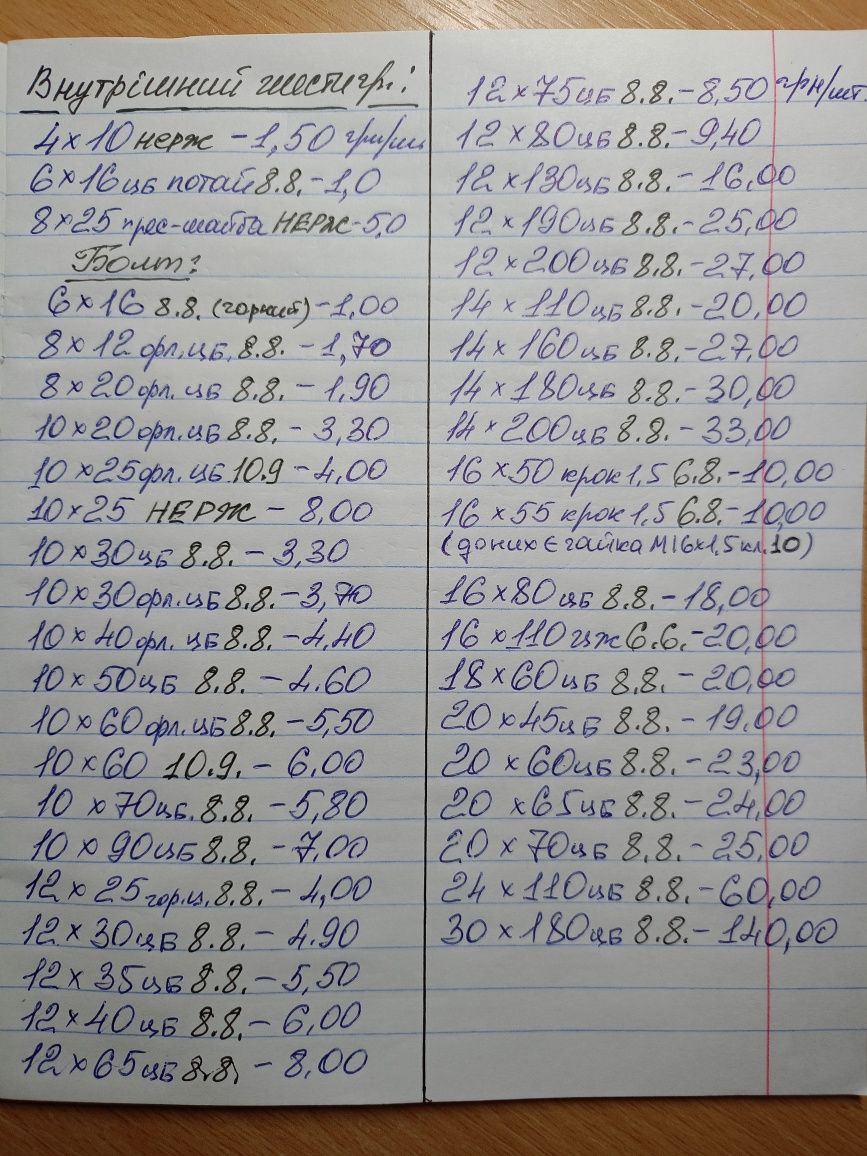 Внутрішний шестигр.:
4×10 нерж – 1,50 грн/шт
6×16 цб потай 8.8. – 1,0
8×25 прес-шайба НЕРЖ – 5,0
Болт:
6×16 8.8. (горний) – 1,00
8×12 фл. цб. 8.8. – 1,70
8×20 фл. цб 8.8. – 1,90
10×20 фл. цб 8.8. – 3,30
10×25 фл. цб 10.9 – 4,00
10×25 НЕРЖ – 8,00
10×30 цб 8.8. – 3,30
10×30 фл. цб 8.8. – 3,70
10×40 фл. цб 8.8. – 4.40
10×50 цб 8.8. – 4.60
10×60 фл. цб 8.8. – 5,50
10×60 10.9. – 6,00
10×70 цб. 8.8. – 5,80
10×90 цб 8.8. – 7,00
12×25 гор.ц. 8.8. – 4,00
12×30 цб 8.8. – 4.90
12×35 цб 8.8. – 5,50
12×40 цб 8.8. – 6,00
12×65 цб 8.8. – 8,00
12×75 цб 8.8. – 8,50 грн/шт
12×80 цб 8.8. – 9,40
12×130 цб 8.8. – 16,00
12×190 цб 8.8. – 25,00
12×200 цб 8.8. – 27,00
14×110 цб 8.8. – 20,00
14×160 цб 8.8. – 27,00
14×180 цб 8.8. – 30,00
14×200 цб 8.8. – 33,00
16×50 крок 1,5 6.8. – 10,00
16×55 крок 1,5 6.8. – 10,00
(до них є гайка М16×1,5 кл.10)
16×80 цб 8.8. – 18,00
16×110 цж 6.6. – 20,00
18×60 цб 8.8. – 20,00
20×45 цб 8.8. – 19.00
20×60 цб 8.8. – 23,00
20×65 цб 8.8. – 24,00
20×70 цб 8.8. – 25,00
24×110 цб 8.8. – 60,00
30×180 цб 8.8. – 140,00